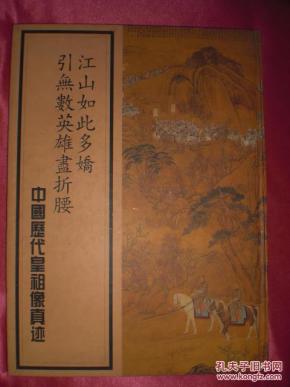 江山如此多嬌
引無數英雄盡折腰
中國歷代皇祖像真迹
孔夫子旧书网